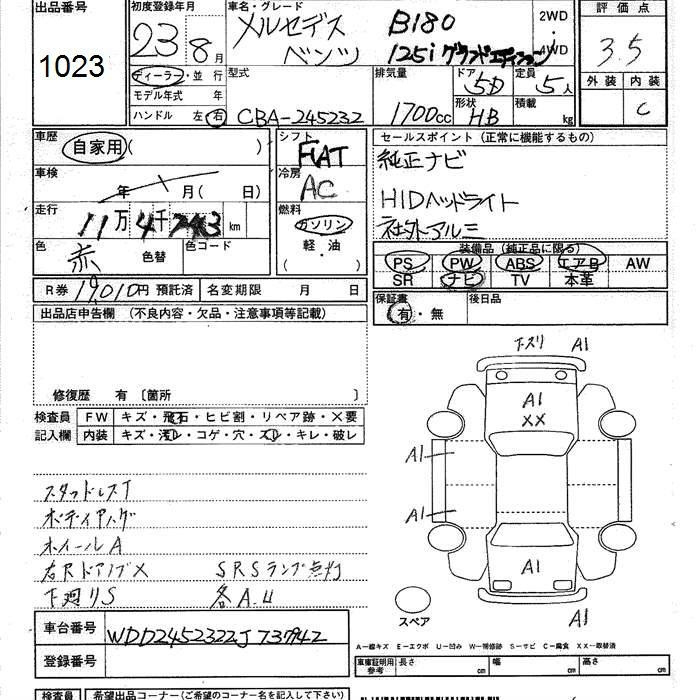 出品番号 1023
初度登録年月 23 8月
車名・グレード メルセデスベンツ B180
125i グランドエディション
2WD・4WD
評価点 3.5
外装 内装 C
ディーラー・並行
モデル年式 年
ハンドル 左 右
型式 CBA-245232
排気量 1700cc
ドア 5D
形状 HB
定員 5人
積載 kg
車歴 自家用( )
車検 年 月( 日)
走行 11万4千743km
色 赤 色替 色コード
シフト FIAT
冷房 AC
燃料 ガソリン
軽・油
( )
セールスポイント (正常に機能するもの)
純正ナビ
HIDヘッドライト
社外アルミ
装備品 (純正品に限る)
PS PW ABS エアB AW
SR ナビ TV 本革
R券 19,010円 預託済 名変期限 月 日
保証書 有・無
後日品
出品店申告欄 (不良内容・欠品・注意事項等記載)
修復歴 有 〔箇所 〕
検査員記入欄
FW キズ・飛石・ヒビ割・リペア跡・X要
内装 キズ・汚レ・コゲ・穴・スレ・キレ・破レ
スタッドレスT
ボディ
ホイールA
右RドアノブX SRSランプ点灯
下廻りS 各A.U
下ズリ A1
A1
XX
A1
A1
A1
A1
スペア
車台番号 WDD2452322J737942
登録番号
A-線キズ E-エクボ U-凹み W-補修跡 S-サビ C-腐食 XX-取替済
車庫証明用参考 長さ cm 幅 cm 高さ cm
検査員 希望出品コーナー(ご希望のコーナー名を記入して下さい)